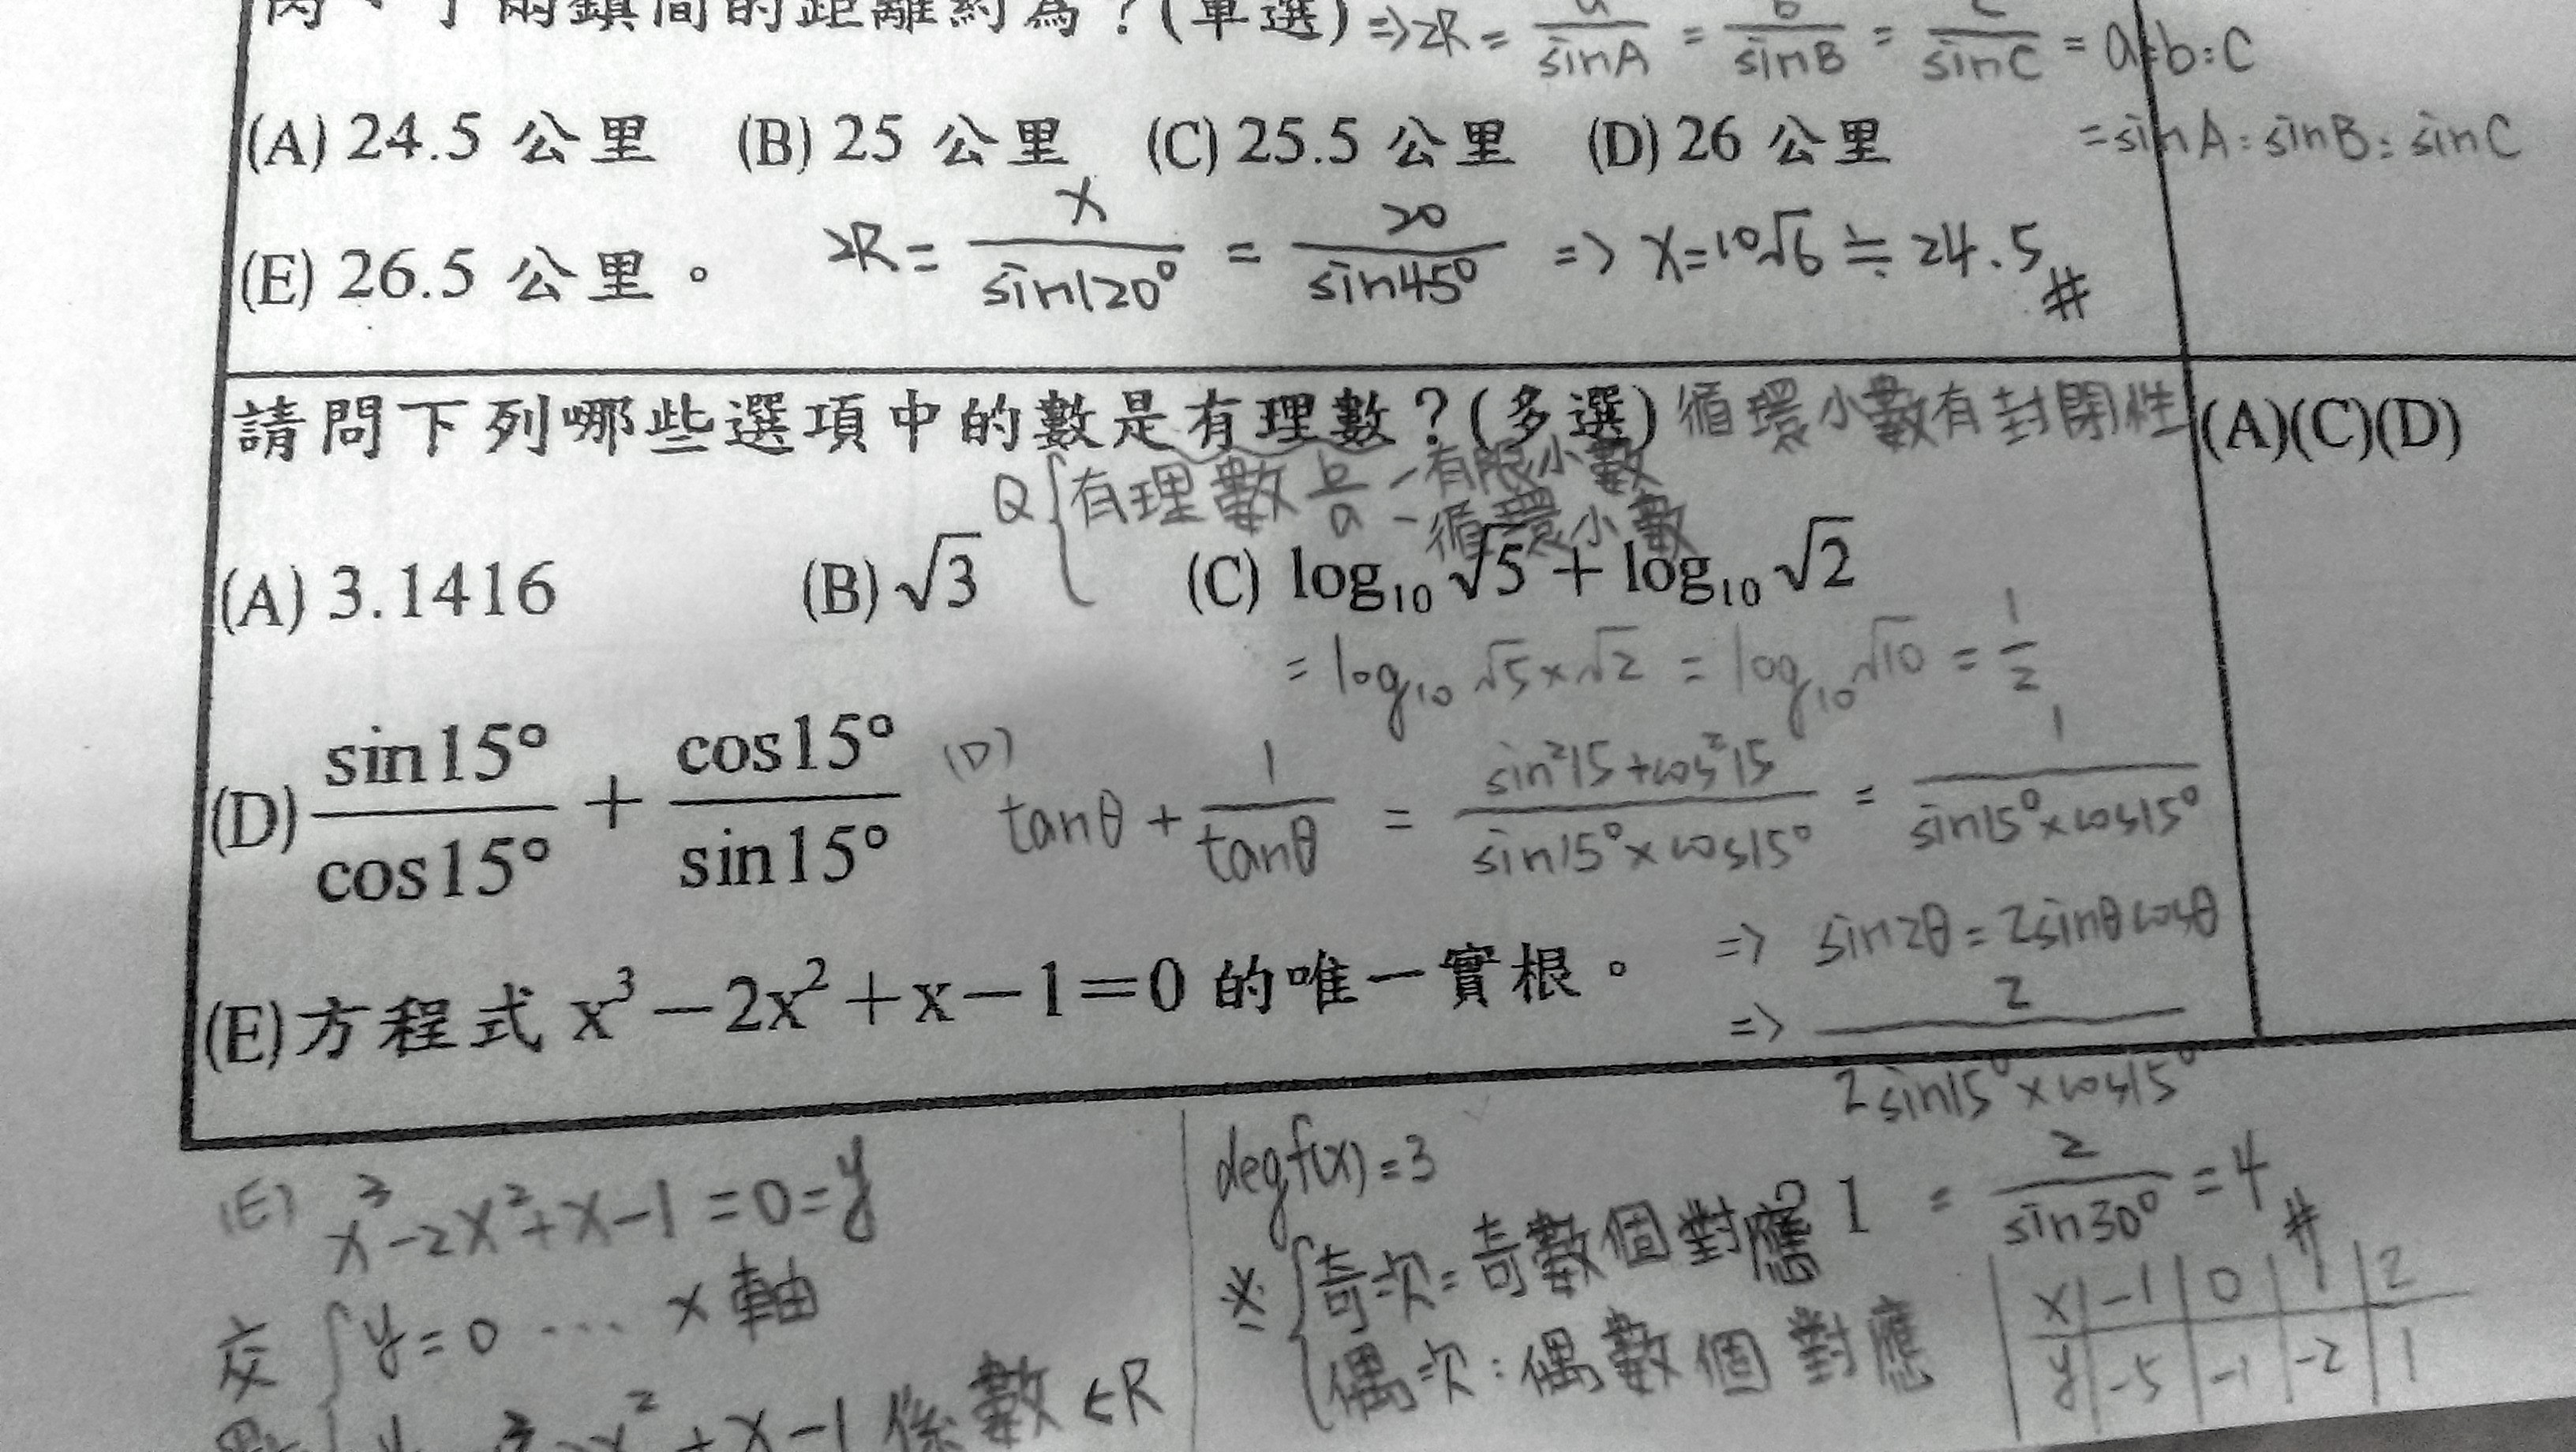 兩鎮間的距離約為？(單選) => 2R = a/sinA = b/sinB = c/sinC = a:b:c
(A) 24.5 公里 (B) 25 公里 (C) 25.5 公里 (D) 26 公里 = sinA : sinB : sinC
(E) 26.5 公里。 2R = x/sin120° = 20/sin45° => x=10√6 ≒ 24.5 #
請問下列哪些選項中的數是有理數？(多選) 循環小數有封閉性 (A)(C)(D)
Q { 有理數 b/a - 有限小數
- 循環小數
(A) 3.1416 (B) √3 (C) log₁₀ √5 + log₁₀ √2
= log₁₀ √5×√2 = log₁₀ √10 = 1/2
(D) sin15°/cos15° + cos15°/sin15° (D) tanθ + 1/tanθ = sin²15+cos²15/sin15°×cos15° = 1/sin15°×cos15°
=> sin2θ = 2sinθcosθ
(E) 方程式 x³－2x²＋x－1＝0 的唯一實根。 => 2/2sin15°×cos15°
(E) x³-2x²+x-1=0=y
degf(x)=3
= 2/sin30° = 4 #
※ { 奇次=奇數個對應
交 { y=0 ... x軸
偶次:偶數個對應
x | -1 | 0 | 1 | 2
y | -5 | -1 | -2 | 1
x²+x-1 係數 ∈R